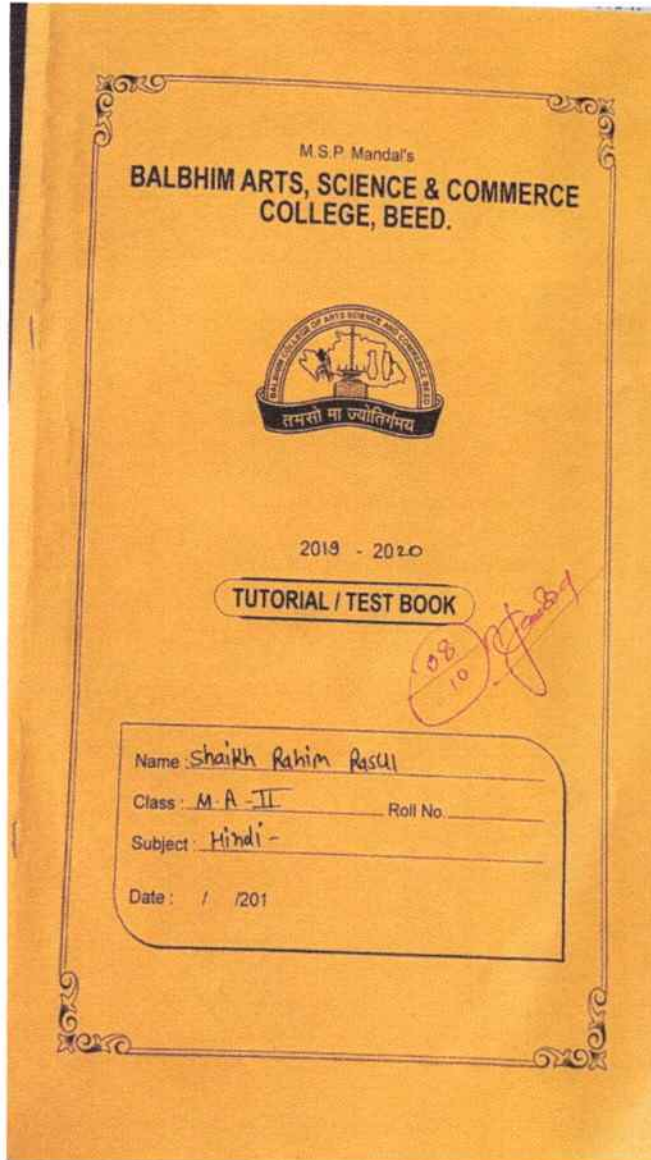 M.S.P. Mandal's
BALBHIM ARTS, SCIENCE & COMMERCE
COLLEGE, BEED.
BALBHIM COLLEGE OF ARTS SCIENCE AND COMMERCE BEED
तमसो मा ज्योतिर्गमय
2019 - 2020
TUTORIAL / TEST BOOK
08
10
Name : Shaikh Rahim Rasul
Class : M.A - II Roll No.
Subject : Hindi -
Date : / /201